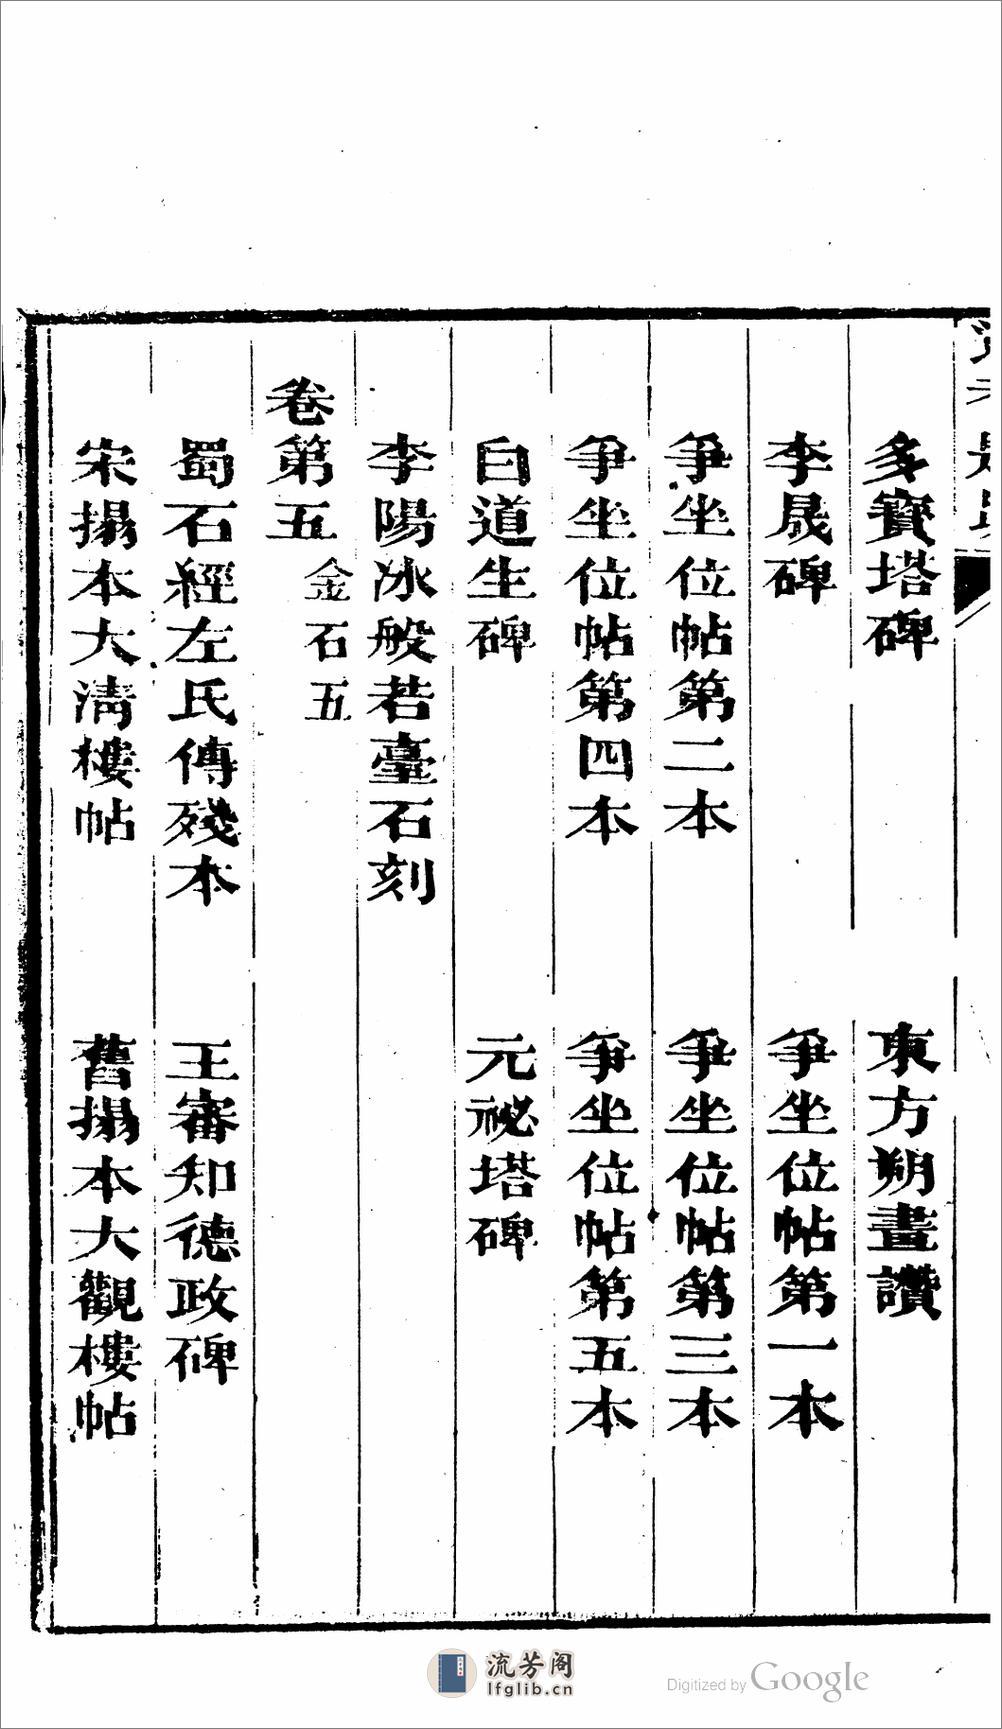 多寶塔碑　東方朔畫讚
李晟碑　爭坐位帖第一本
爭坐位帖第二本　爭坐位帖第三本
爭坐位帖第四本　爭坐位帖第五本
白道生碑　元祕塔碑
李陽冰般若臺石刻
卷第五　金石五
蜀石經左氏傳殘本　王審知德政碑
宋搨本大清樓帖　舊搨本大觀樓帖
流芳阁
lfglib.cn
Digitized by Google